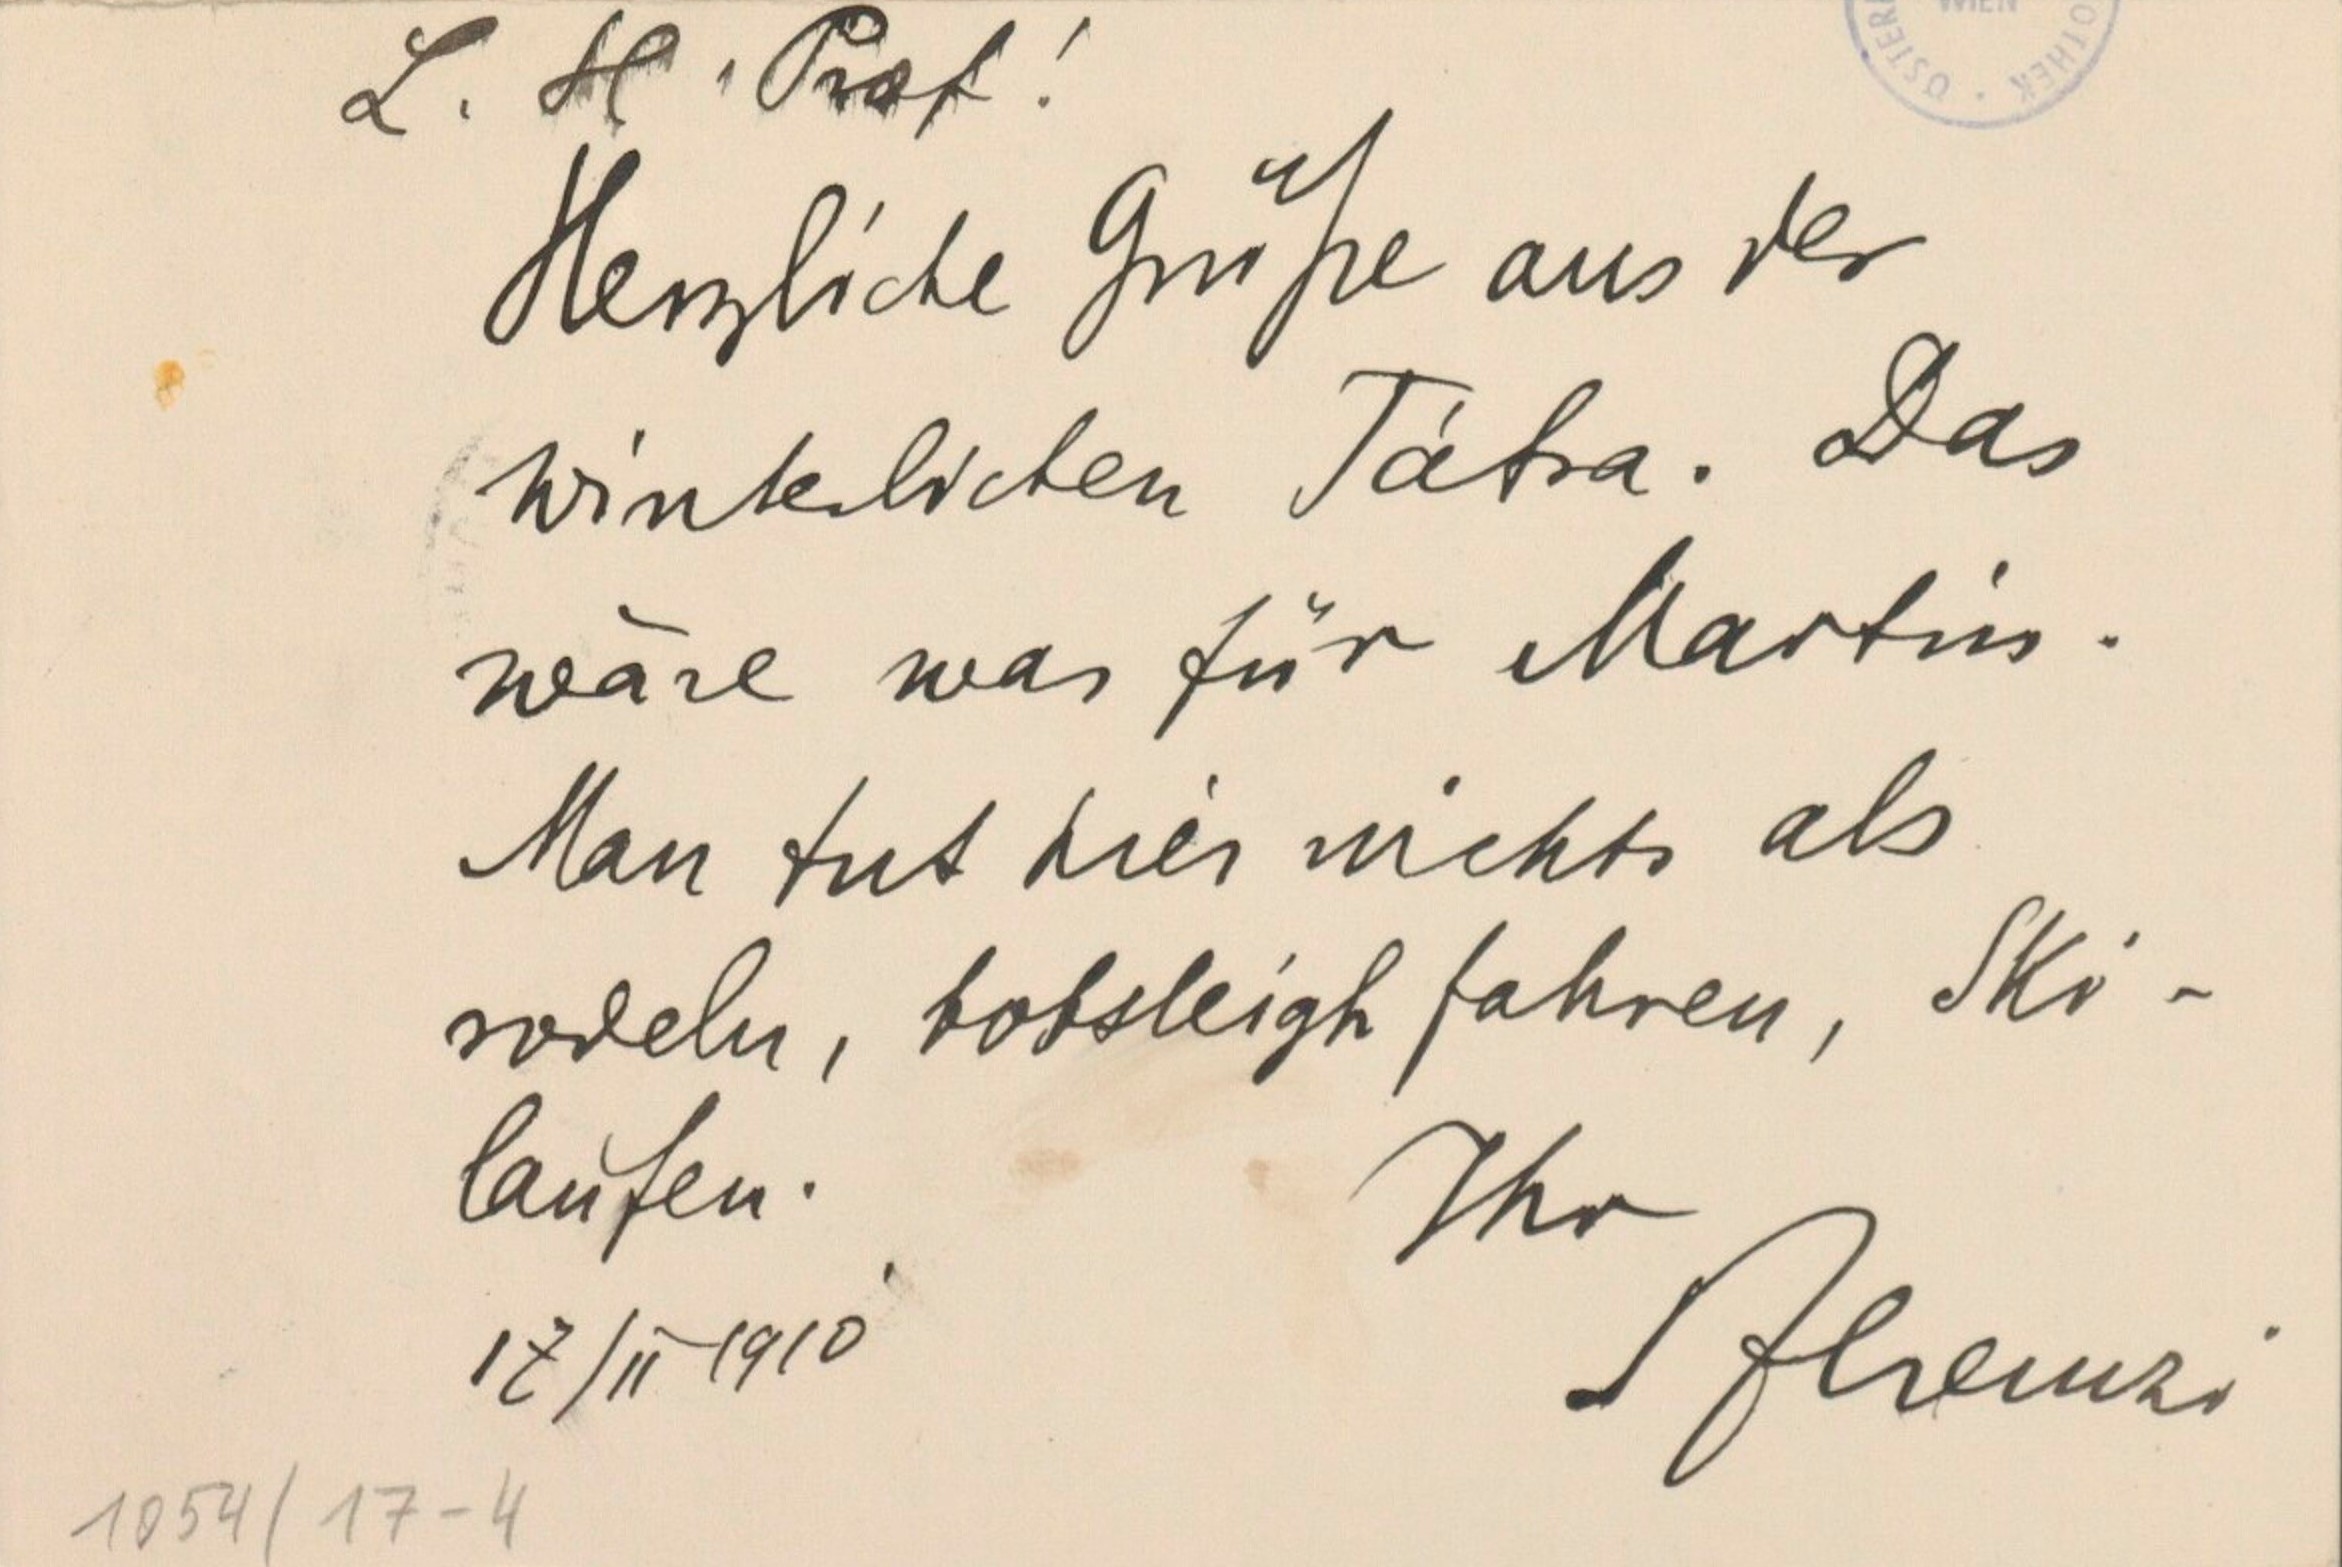 L. H. Prof!
WIEN
Herzliche Grüße aus der
winterlichen Tátra. Das
wäre was für Martin.
Man tut hier nichts als
rodeln, bobsleigh fahren, Ski-
laufen.
Ihr
SFerenzi
17/II 1910
1054/17-4